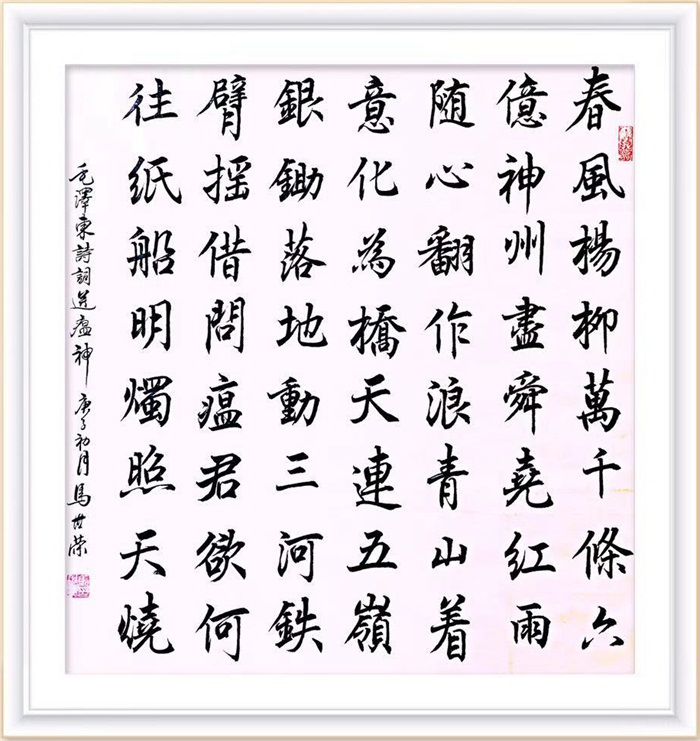 春風楊柳萬千條六
億神州盡舜堯紅雨
随心翻作浪青山着
意化為橋天連五嶺
銀鋤落地動三河鉄
臂摇借問瘟君欲何
往紙船明燭照天燒
毛澤東詩詞送瘟神 庚子初月馬世榮